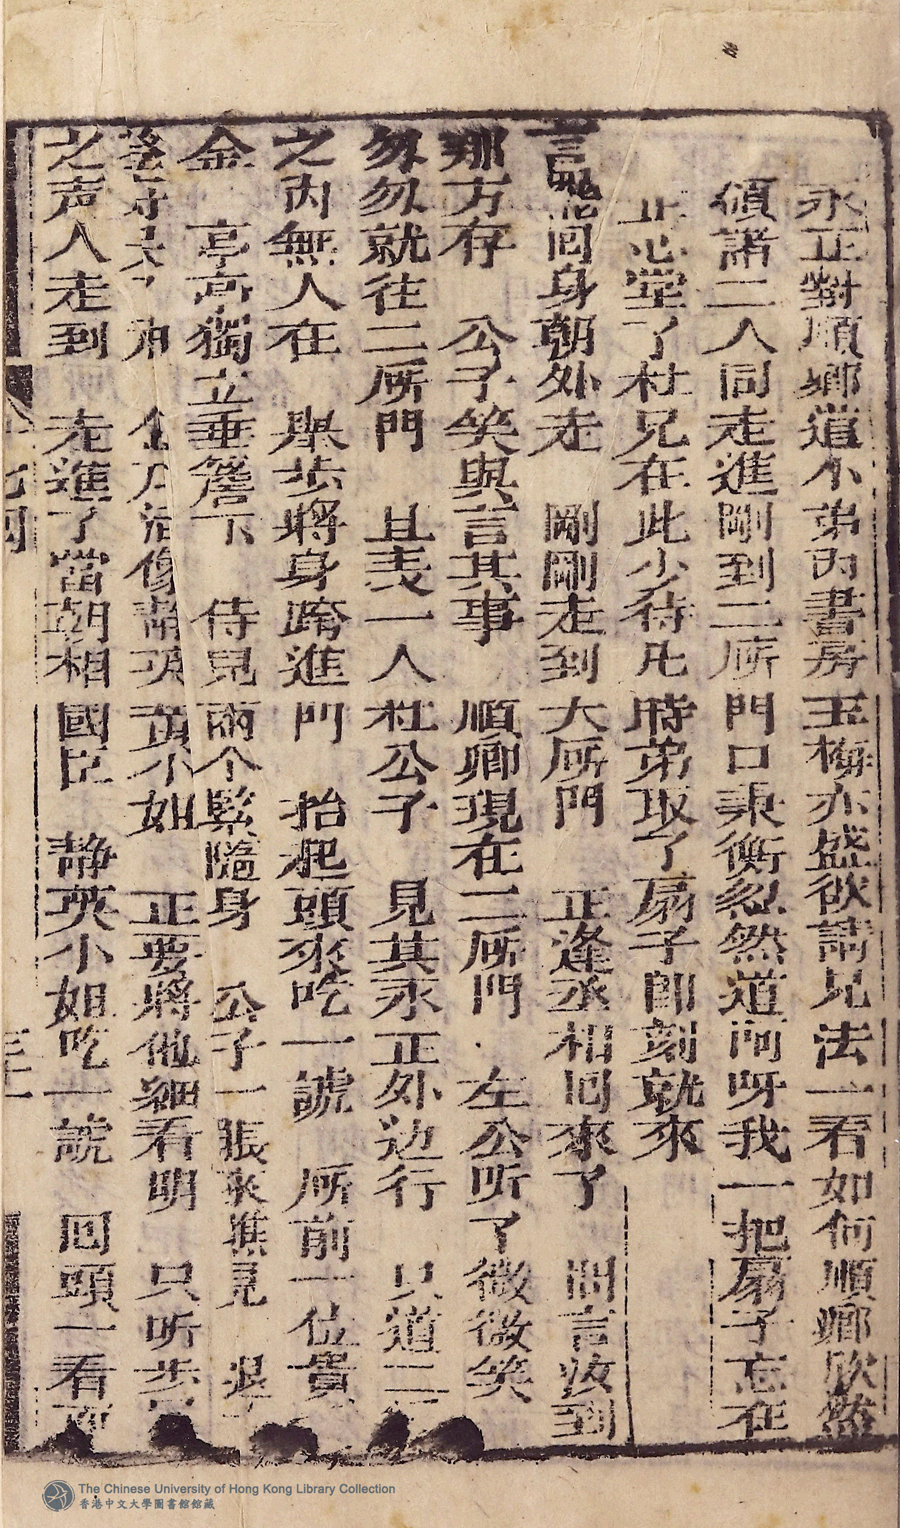 永正對順鄉道小弟內書房玉梅亦盛欲請兄法一看如何順鄉欣然
傾諾二人同走進剛到二𠩄門口秉衡忽然道阿呀我一把扇子忘在
正心堂了杜兄在此少待片時弟取了扇子即刻就來
言罷回身朝外走 剛剛走到大𠩄門 正逢丞相回來了 問言孩到
那方存 公子笑與言其事 順卿現在二𠩄門 左公听了微微笑
匆匆就往二𠩄門 且表一人杜公子 見其永正外边行 只道二
之內無人在 舉步將身跨進門 抬起頭來吃一諕 𠩄前一位貴
金 亭亭獨立垂簷下 侍兒兩个緊隨身 公子一張來進見 退
活像 黃小姐 正要將他細看明 只听步
之声人走到 走進了當朝相國臣 静英小姐吃一諕 回頭一看
The Chinese University of Hong Kong Library Collection
香港中文大學圖書館館藏